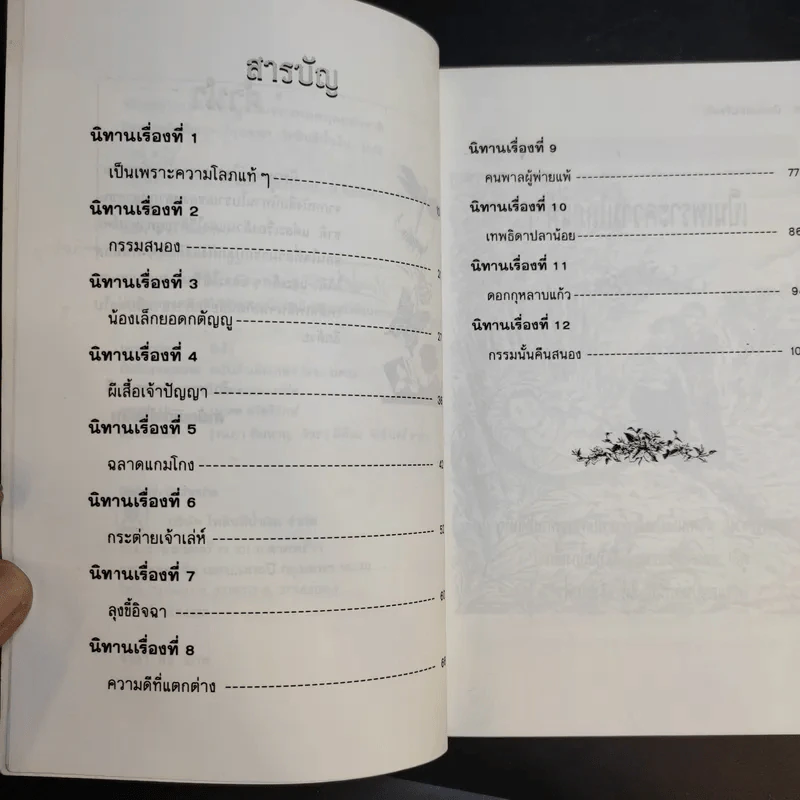 สารบัญ
นิทานเรื่องที่ 1
เป็นเพราะความโลภแท้ ๆ
นิทานเรื่องที่ 2
กรรมสนอง
นิทานเรื่องที่ 3
น้องเล็กยอดกตัญญู
นิทานเรื่องที่ 4
ผีเสื้อเจ้าปัญญา 36
นิทานเรื่องที่ 5
ฉลาดแกมโกง
นิทานเรื่องที่ 6
กระต่ายเจ้าเล่ห์
นิทานเรื่องที่ 7
ลุงขี้อิจฉา
นิทานเรื่องที่ 8
ความดีที่แตกต่าง
นิทานเรื่องที่ 9
คนพาลผู้พ่ายแพ้ 77
นิทานเรื่องที่ 10
เทพธิดาปลาน้อย 86
นิทานเรื่องที่ 11
ดอกกุหลาบแก้ว
นิทานเรื่องที่ 12
กรรมนั้นคืนสนอง